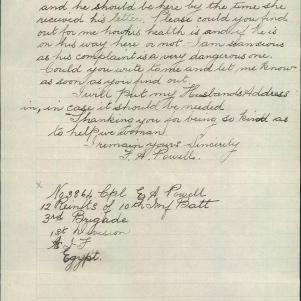 and he should be here by the time she
received his letter. Please could you find
out for me how his health is and if he is
on his way here or not. I am so anxious
as his complaint is a very dangerous one.
Could you write to me and let me know
as soon as you find out.
I will put my Husbands Address
in, in case it should be needed
Thanking you for being so kind as
to help we woman.
I remain yours Sincerly
F. A. Powell.
No 3864 Cpl E A Powell
12 Reinfts of 10th Inf Batt
3rd Brigade
1st Division
A. I. F
Egypt.